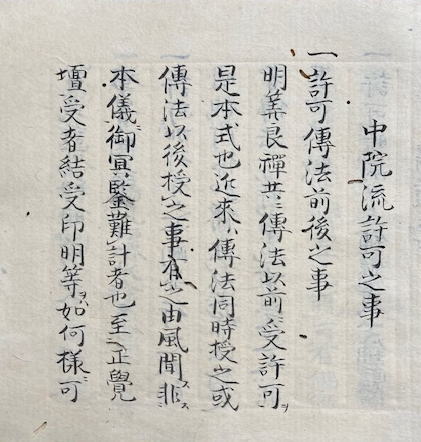 中院流許可之事
一許可傳法前後之事
明筭良禪共ニ傳法以前ニ受許可ヲ
是本式也近來ハ傳法同時授之或
傳法以後授之事有之由風聞非ス
本儀ニ御冥鑒難計者也至正覺
壇受者結受印明等ヲハ如何樣ニ可